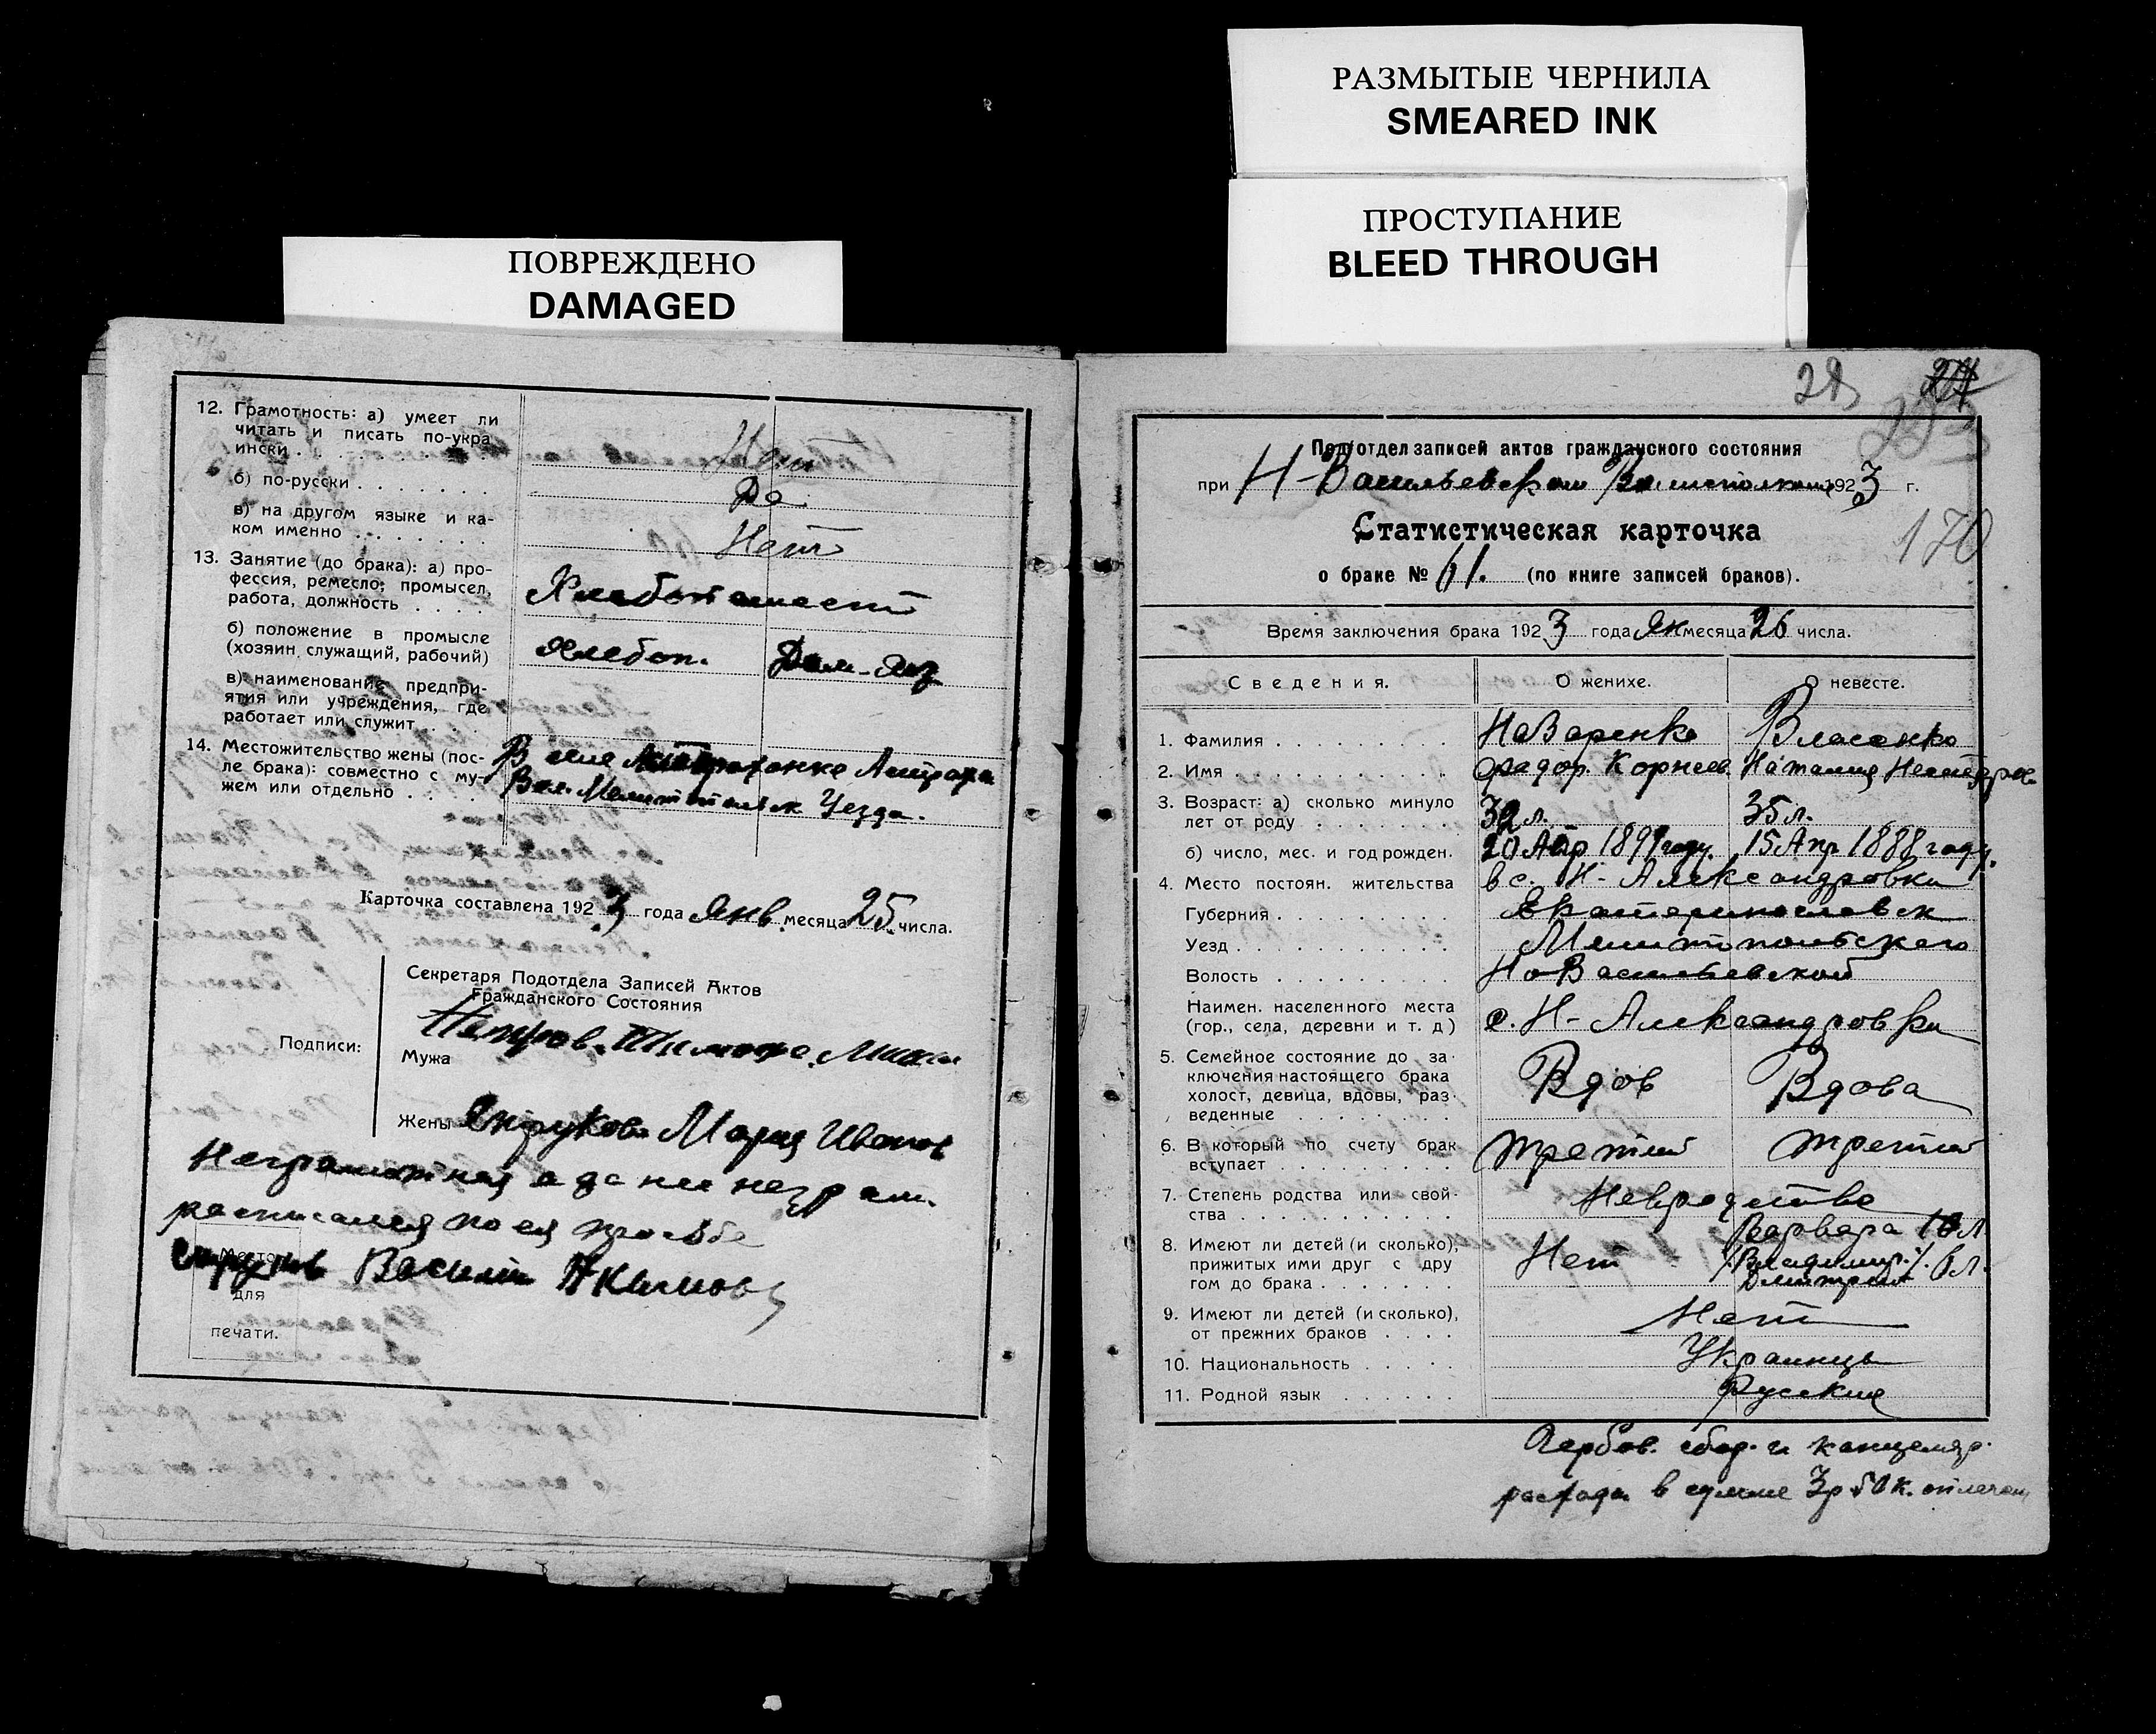 РАЗМЫТЫЕ ЧЕРНИЛА
SMEARED INK
ПРОСТУПАНИЕ
BLEED THROUGH
ПОВРЕЖДЕНО
DAMAGED
12. Грамотность: а) умеет ли
читать и писать по-укра
ински . . . Нет
б) по-русски . . . Да
в) на другом языке и ка-
ком именно . . . Нет
13. Занятие (до брака): а) про-
фессия, ремесло, промысел,
работа, должность . . .
б) положение в промысле
(хозяин, служащий, рабочий) Хлебоп. Дом-хоз
в) наименование предпри-
ятия или учреждения, где
работает или служит . . .
14. Местожительство жены (пос-
ле брака): совместно с му-
жем или отдельно . . .
В селе Астраханке
Вол. Мелитопольск Уезда.
Карточка составлена 1923 года Янв. месяца 25 числа.
Секретаря Подотдела Записей Актов
Гражданского Состояния
Подписи:
Мужа
Жены Мария Иванов
Неграмотная а за нее неграм.
расписался по ея просьбе
Василий Акимов
Место
для
печати.
28
170
Под'отдел записей актов гражданского состояния
при Н-Васильевском 1923 г.
Статистическая карточка
о браке № 61. (по книге записей браков).
Время заключения брака 1923 года Ян месяца 26 числа.
Сведения. О женихе. О невесте.
1. Фамилия . . . Назаренко Власенко
2. Имя . . . Федор Корнеев Наталия
3. Возраст: а) сколько минуло
лет от роду . . . 32 л. 35 л.
б) число, мес. и год рожден. 20 Апр году. 15 Апр 1888 году.
4. Место постоян. жительства в с. Н-Александровки
Губерния . . . Екатеринославск
Уезд . . . Мелитопольского
Волость . . . Но-Васильевской
Наимен. населенного места
(гор., села, деревни и т. д) с. Н-Александровки
5. Семейное состояние до за-
ключения настоящего брака
холост, девица, вдовы, раз-
веденные Вдов Вдова
6. В который по счету брак
вступает . . . третий третий
7. Степень родства или свой-
ства . . . Невродстве
8. Имеют ли детей (и сколько),
прижитых ими друг с дру
гом до брака . . . Нет
Варвара
Владимир 6 л.
Дмитрий
9. Имеют ли детей (и сколько),
от прежних браков . . . Нет
10. Национальность . . . Украинцы
11. Родной язык . . . Русский
Гербов. сбор. и канцеляр.
расхода в сумме 3 р 50 к. оплачен